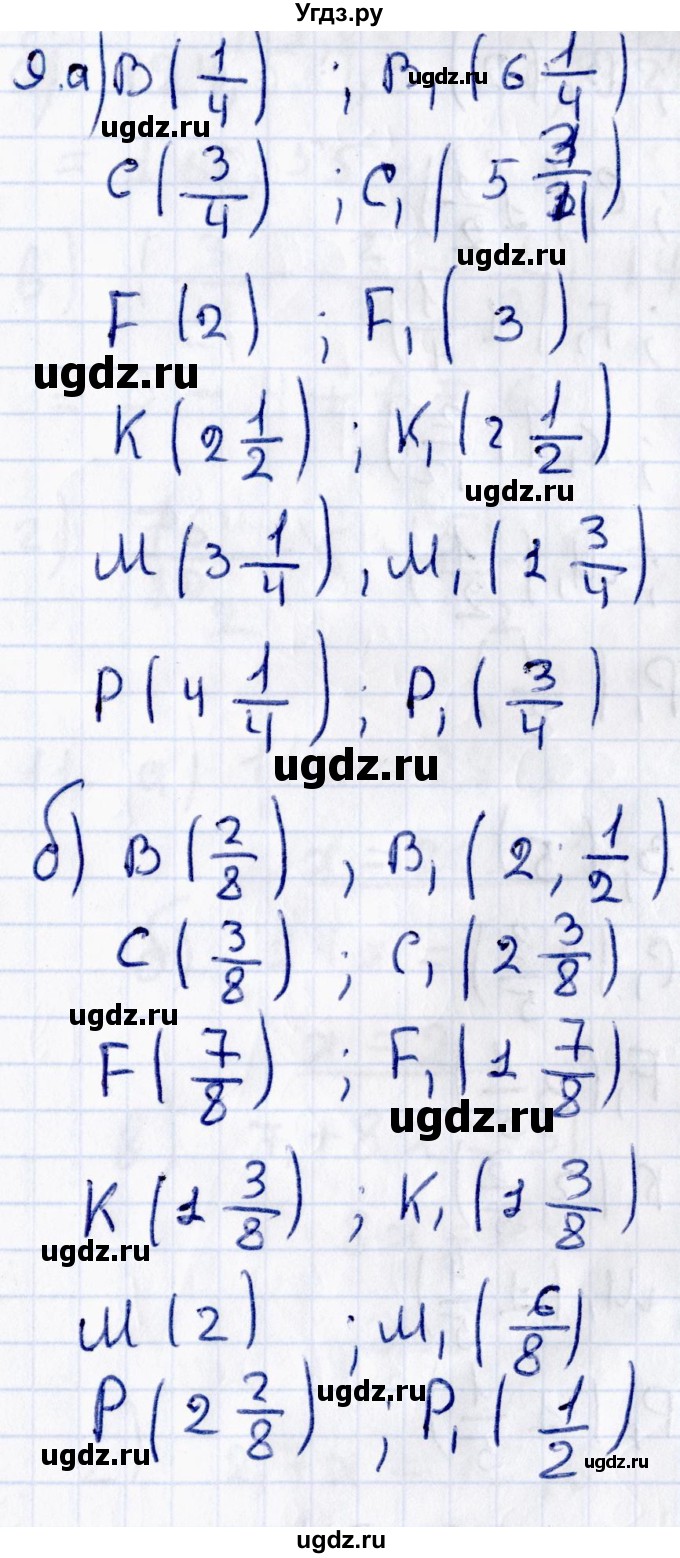 Угдз.ру
9.а) B(1/4) ; B₁(6 1/4)
ugdz.ru
ugdz.ru
C(3/4) ; C₁(5 3/4)
ugdz.ru
F(2) ; F₁(3)
ugdz.ru
K(2 1/2) ; K₁(2 1/2)
ugdz.ru
M(3 1/4) , M₁(1 3/4)
P(4 1/4) ; P₁(3/4)
ugdz.ru
б) B(2/8) , B₁(2; 1/2)
C(3/8) ; C₁(2 3/8)
ugdz.ru
F(7/8) ; F₁(1 7/8)
ugdz.ru
K(1 3/8) ; K₁(1 3/8)
ugdz.ru
M(2) ; M₁(6/8)
ugdz.ru
P(2 2/8) ; P₁(1/2)
ugdz.ru
ugdz.ru
ugdz.ru